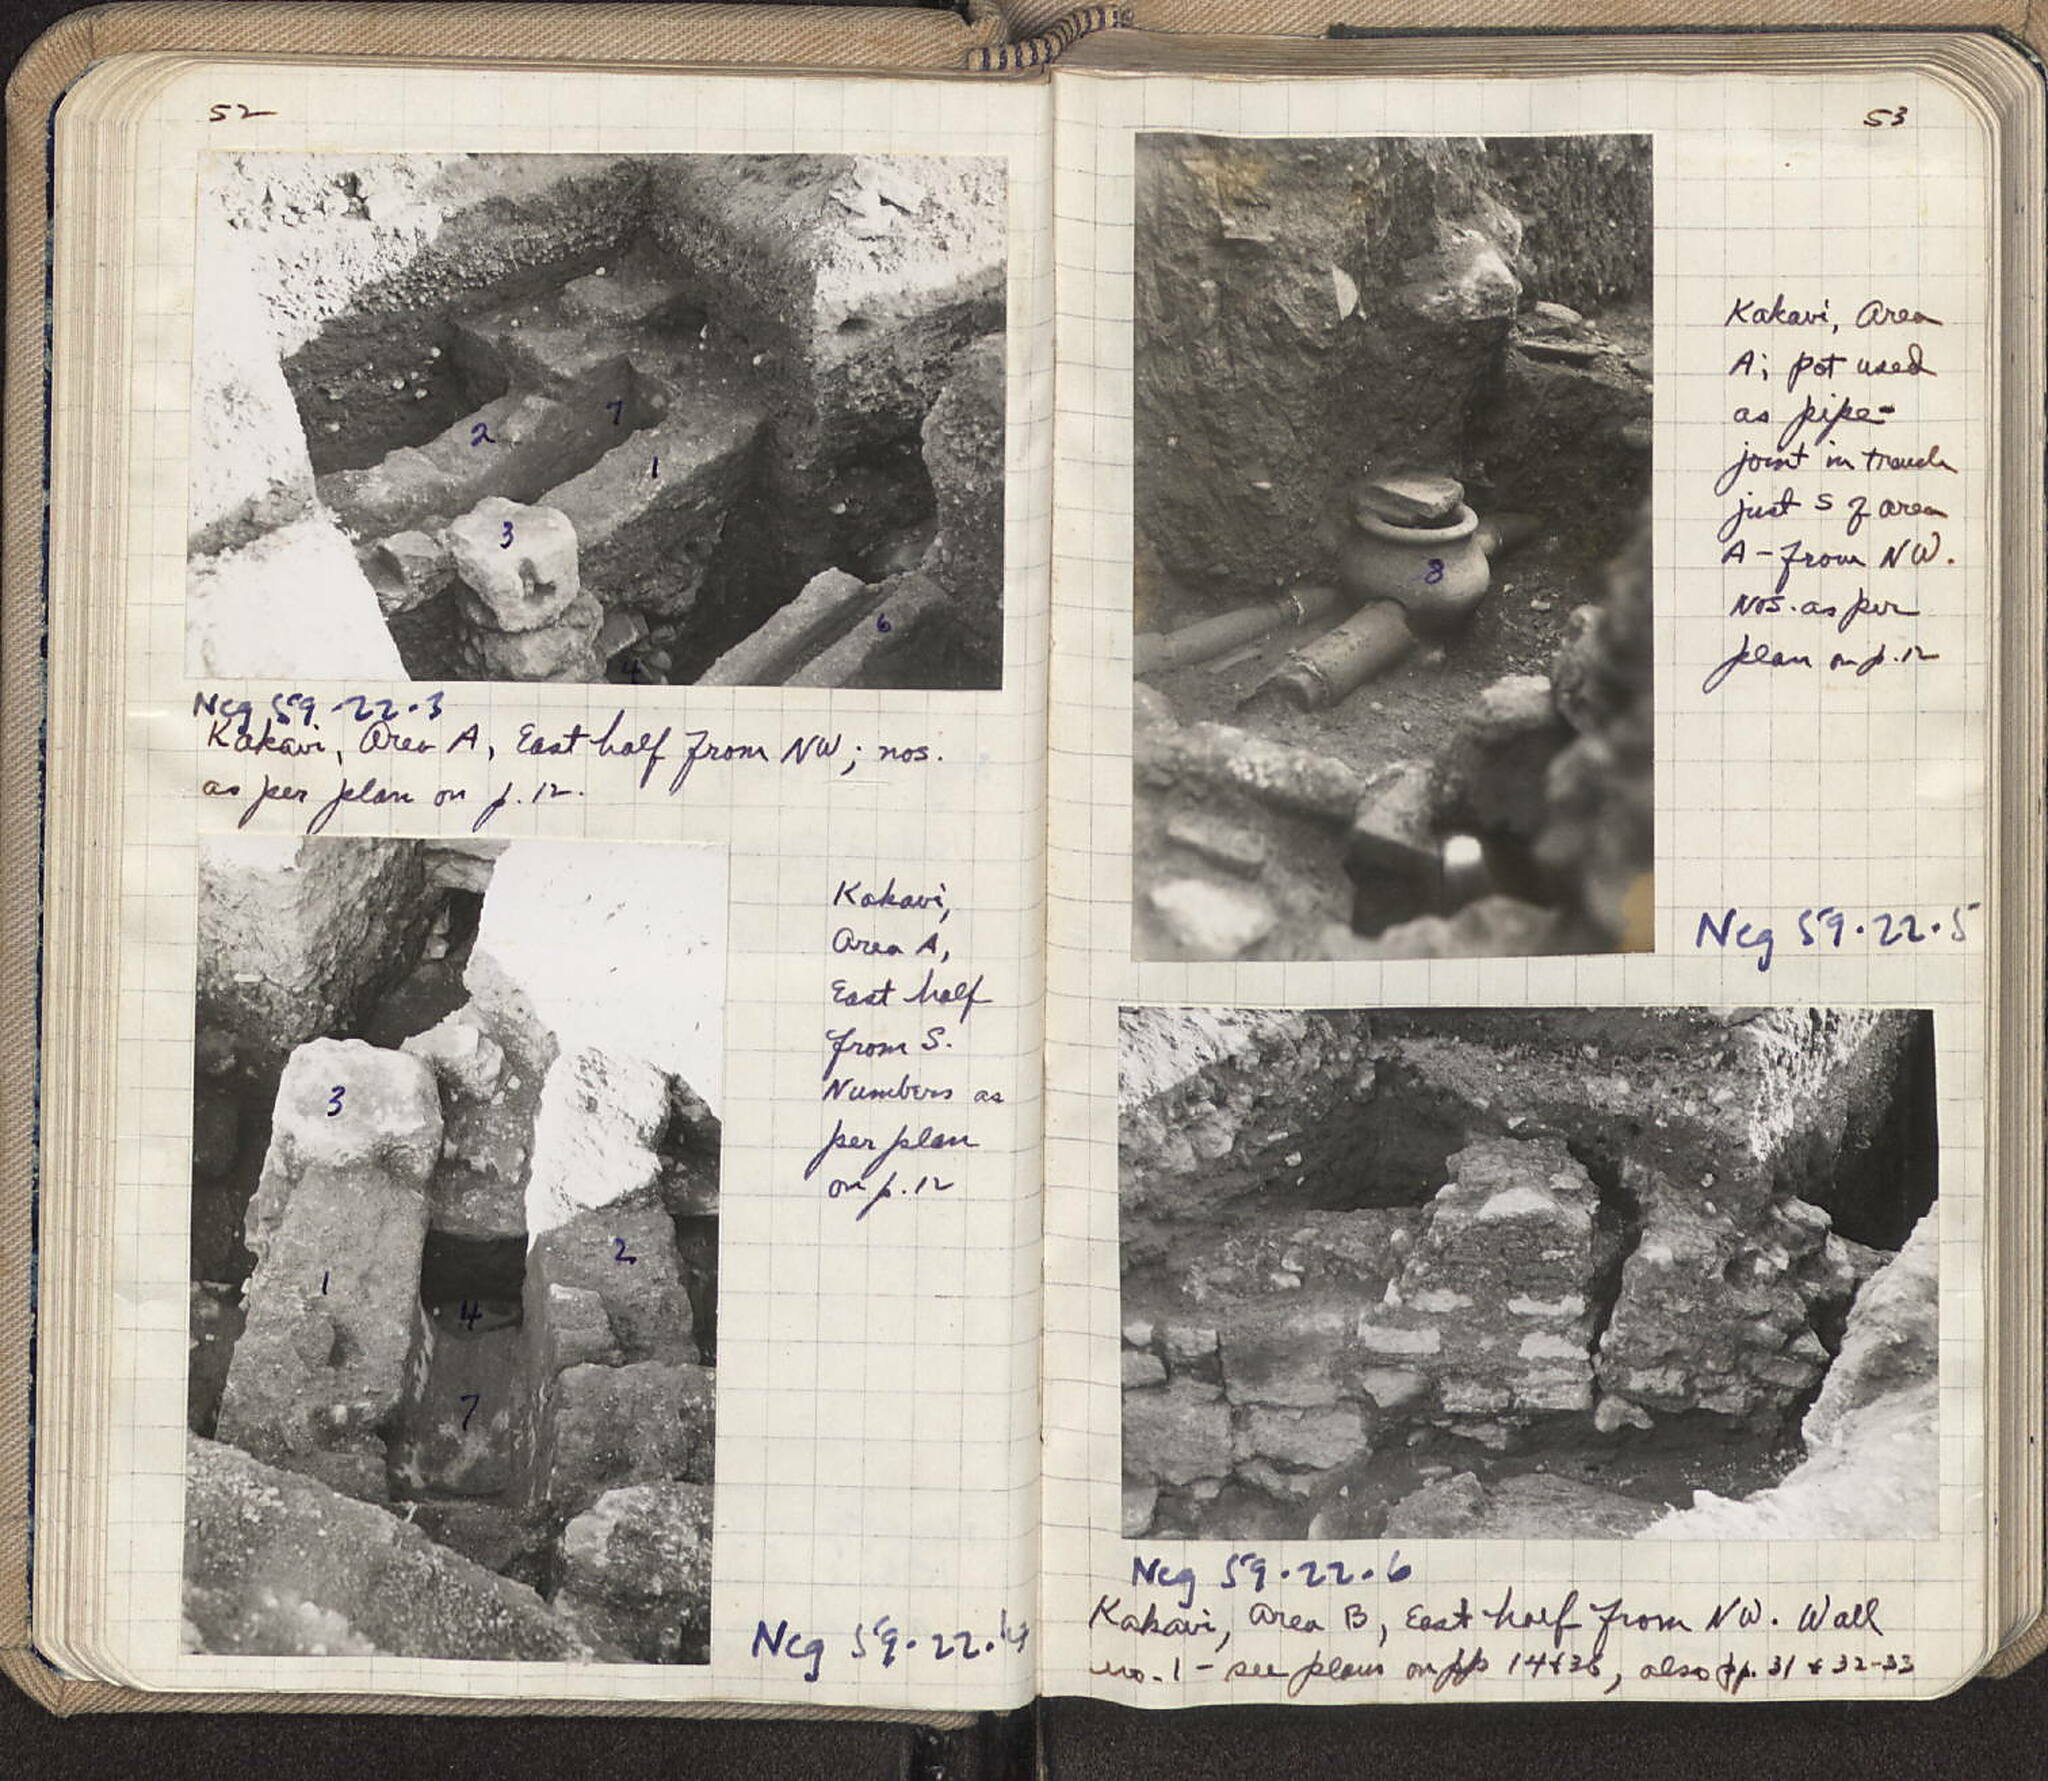 52
2
7
1
3
6
4
Neg 59.22.3
Kakavi, Area A, East half from NW; nos.
as per plan on p.12.
3
1
2
4
7
Kakavi,
Area A,
East half
from S.
Numbers as
per plan
on p.12
Neg 59.22.4
53
8
Kakavi, Area
A; pot used
as pipe-
joint in trench
just S of area
A - from NW.
Nos. as per
plan on p.12
Neg 59.22.5
Neg 59.22.6
Kakavi, Area B, East half from NW. Wall
no. 1 - see plans on pp 14 & 36, also pp. 31 & 32-33